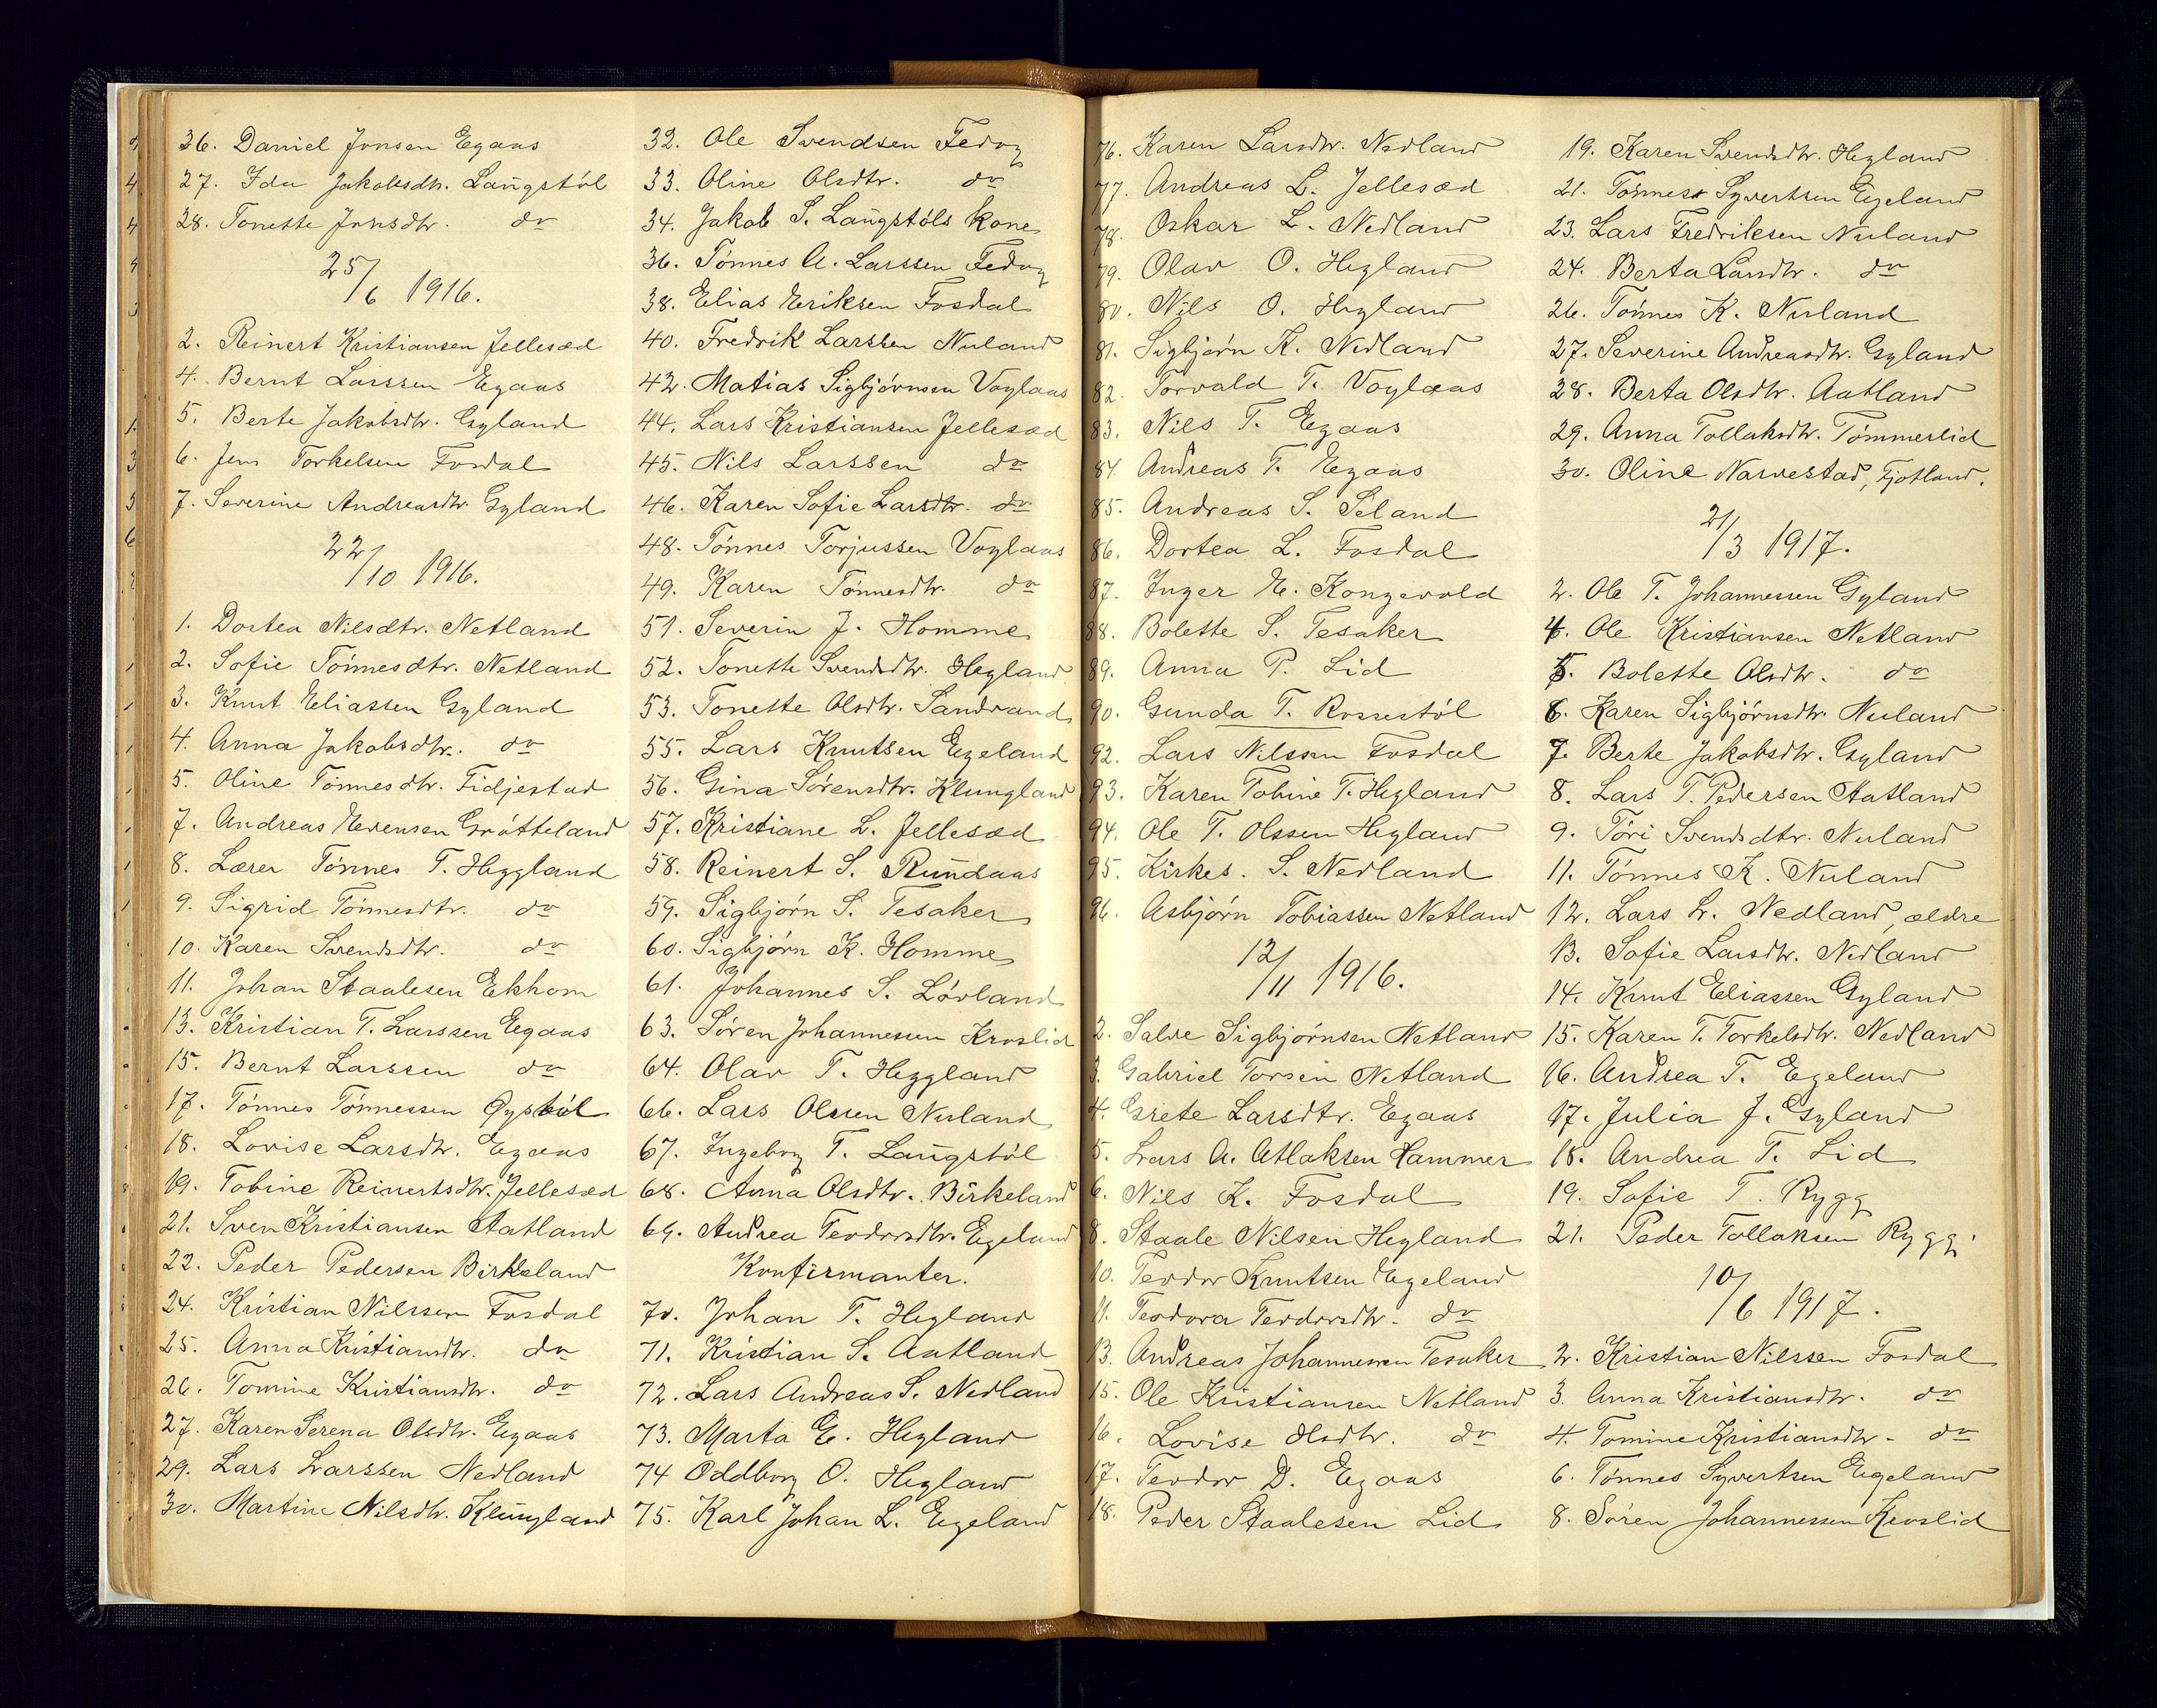 36. Daniel Jonsen Egaas
27. Ida Jakobsdtr. Langstøl
28. Tonette Jonsdtr. do
25/6 1916.
2. Reinert Kristiansen Jellesæd
4. Bernt Larssen Egaas
5. Berte Jakobsdtr. Gyland
6. Jens Torkelsen Fosdal
7. Severine Andreasdtr. Gyland
22/10 1916.
1. Dortea Nilsdtr. Netland
2. Sofie Tønnesdtr. Netland
3. Knut Eliassen Gyland
4. Anna Jakobsdtr. do
5. Oline Tønnesdtr. Fidjestad
7. Andreas Evensen Grøtteland
8. Lærer Tønnes T. Heggland
9. Sigrid Tønnesdtr. do
10. Karen Svendsdtr. do
11. Johan Staalesen Ekhom
13. Kristian T. Larssen Egaas
15. Bernt Larssen do
17. Tønnes Tønnessen Øystøl
18. Lovise Larsdtr. Egaas
19. Tobine Reinertsdtr. Jellesæd
21. Sven Kristiansen Aatland
22. Peder Pedersen Birkeland
24. Kristian Nilssen Fosdal
25. Anna Kristiansdtr. do
26. Tomine Kristiansdtr. do
27. Karen Serena Olsdtr. Egaas
29. Lars Larssen Nedland
30. Martine Nilsdtr. Klungland
32. Ole Svendsen Fedog
33. Oline Olsdtr. do
34. Jakob S. Langstøls kone
36. Tønnes A. Larssen Fedog
38. Elias Eriksen Fosdal
40. Fredrik Larssen Nuland
42. Matias Sigbjørnsen Voglaas
44. Lars Kristiansen Jellesæd
45. Nils Larssen do
46. Karen Sofie Larsdtr. do
48. Tønnes Torjussen Voglaas
49. Karen Tønnesdtr. do
51. Severin J. Homme
52. Tonette Svendsdtr. Hegland
53. Tonette Olsdtr. Sandvand
55. Lars Knutsen Egeland
56. Gina Sørensdtr. Klungland
57. Kristiane L. Jellesæd
58. Reinert S. Rundaas
59. Sigbjørn S. Tesaker
60. Sigbjørn K. Homme
61. Johannes S. Løvland
63. Søren Johannessen Kvoslid
64. Olav T. Heggland
66. Lars Olssen Nuland
67. Ingeborg T. Langstøl
68. Anna Olsdtr. Birkeland
69. Andrea Teodorsdtr. Egeland
Konfirmanter.
70. Johan T. Hegland
71. Kristian S. Aatland
72. Lars Andreas S. Nedland
73. Marta E. Hegland
74 Oddborg O. Hegland
75. Karl Johan L. Egeland
76. Karen Larsdtr. Nedland
77. Andreas L. Jellesæd
78. Oskar L. Nedland
79. Olav O. Hegland
80. Nils O. Hegland
81. Sigbjørn K. Nedland
82. Torvald T. Voglaas
83. Nils T. Egaas
84. Andreas T. Egaas
85. Andreas S. Seland
86. Dortea L. Fosdal
87. Inger E. Kongevold
88. Bolette S. Tesaker
89. Anna P. Lid
90. Gunda T. Rossestøl
92. Lars Nilssen Fosdal
93. Karen Tobine T. Hegland
94. Ole T. Olssen Hegland
95. Kirkes. S. Nedland
96. Asbjørn Tobiassen Netland
12/11 1916.
2. Salve Sigbjørnsen Netland
3. Gabriel Torsen Netland
4. Grete Larsdtr. Egaas
5. Lars A. Atlaksen Hammer
6. Nils K. Fosdal
8. Staale Nilsen Hegland
10. Teodor Knutsen Egeland
11. Teodora Teodorsdtr. do
13. Andreas Johannessen Tesaker
15. Ole Kristiansen Netland
16. Lovise Olsdtr. do
17. Teodor D. Egaas
18. Peder Staalesen Lid
19. Karen Svendsdtr. Hegland
21. Tønnes Syvertsen Egeland
23. Lars Fredriksen Nuland
24. Berta Larsdtr. do
26. Tønnes K. Nuland
27. Severine Andreasdtr. Gyland
28. Berta Olsdtr. Aatland
29. Anna Tollaksdtr. Tømmerlid
30. Oline Narvestad, Fjotland.
21/3 1917.
2. Ole T. Johannessen Gyland
4. Ole Kristiansen Netland
5. Bolette Olsdtr. do
6. Karen Sigbjørnsdtr. Nuland
7. Berte Jakobsdtr. Gyland
8. Lars T. Pedersen Aatland
9. Tøri Svendsdtr. Nuland
11. Tønnes K. Nuland
12. Lars L. Nedland, ældre
13. Sofie Larsdtr. Nedland
14. Knut Eliassen Gyland
15. Karen T. Torkelsdtr. Nedland
16. Andrea T. Egeland
17. Julia J. Gyland
18. Andrea T. Lid
19. Sofie T. Rygg
21. Peder Tollaksen Rygg.
10/6 1917.
2. Kristian Nilssen Fosdal
3. Anna Kristiansdtr. do
4. Tomine Kristiansdtr. do
6. Tønnes Syvertsen Egeland
8. Søren Johannessen Kvoslid